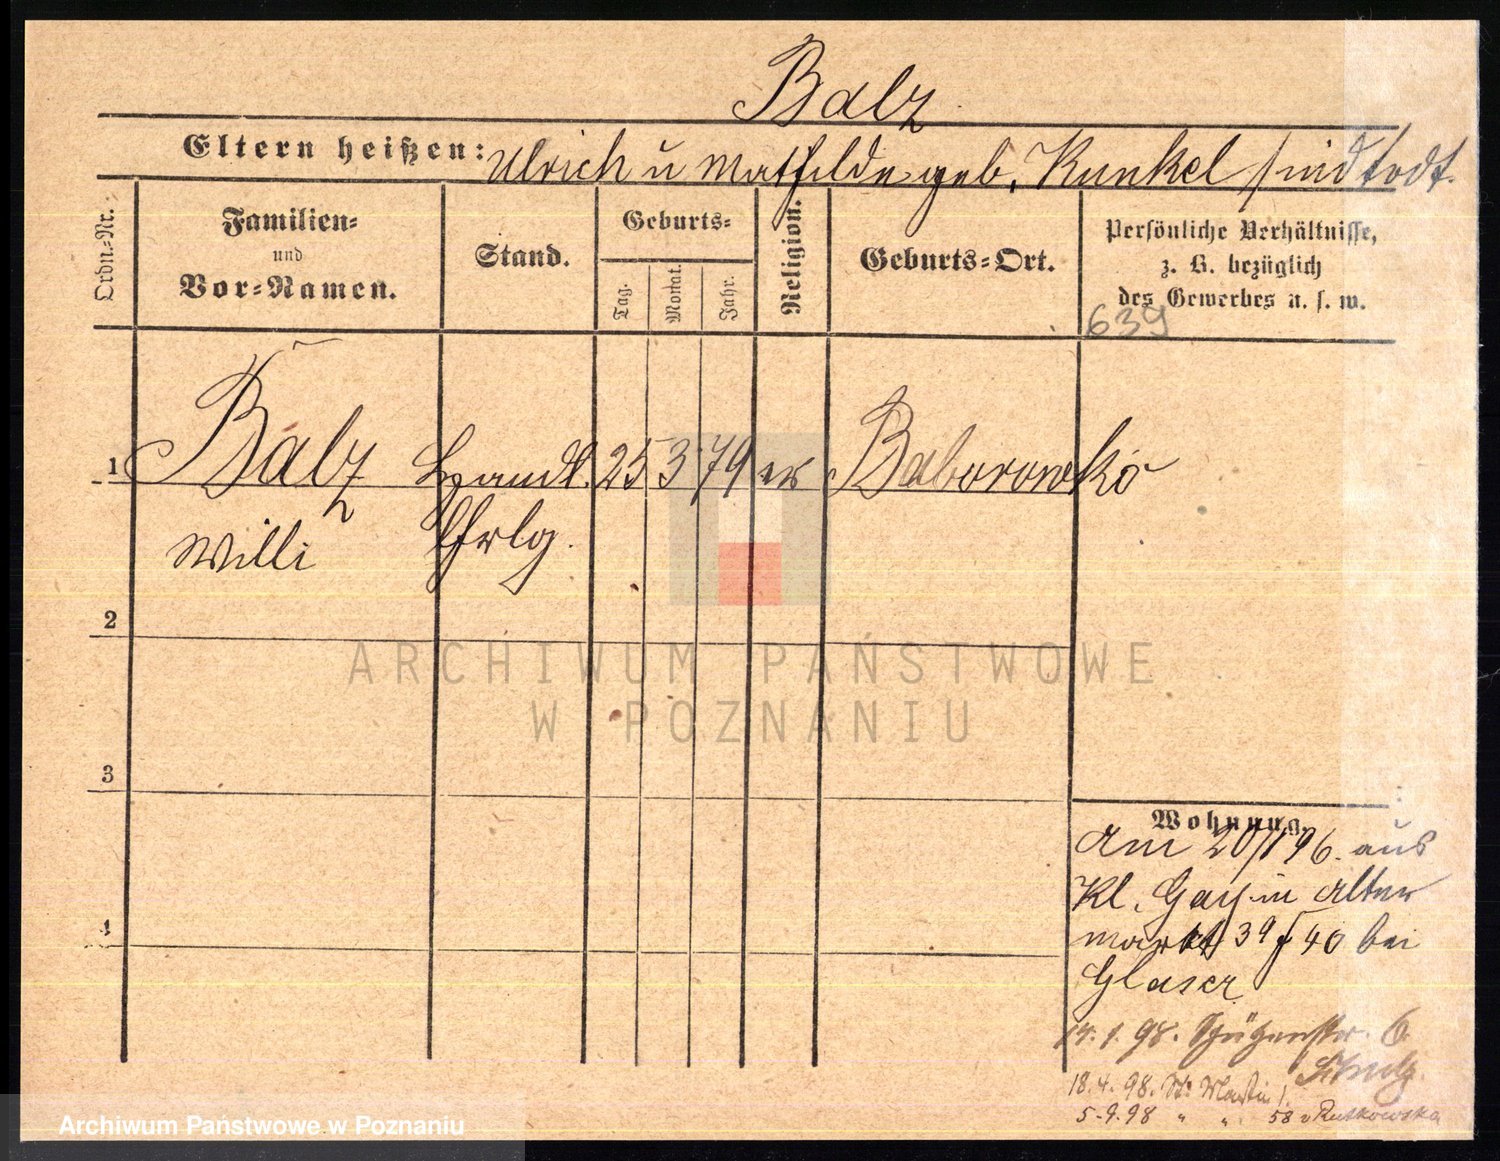 Balz
Eltern heißen: Ulrich u Mathilde geb. Kunkel sind todt.
Ordn.-Nr.
Familien-
und
Vor-Namen.
Stand.
Geburts-
Tag.
Monat.
Jahr.
Religion.
Geburts-Ort.
Persönliche Verhältnisse,
z. B. bezüglich
des Gewerbes u. s. w.
639
1 Balz Handl. 25 3 79 ev Baborowko
Willi Lhrlg.
2
ARCHIWUM PAŃSTWOWE
W POZNANIU
3
4
Wohnung.
Am 20/1 96. aus
Kl. Gay in Alter
markt 39 40 bei
Glaser
14. 1. 98. Schützenstr. 6.
Scholz.
18. 4. 98. St. Martin 1.
5. 9. 98 " " 58 Rutkowska
Archiwum Państwowe w Poznaniu